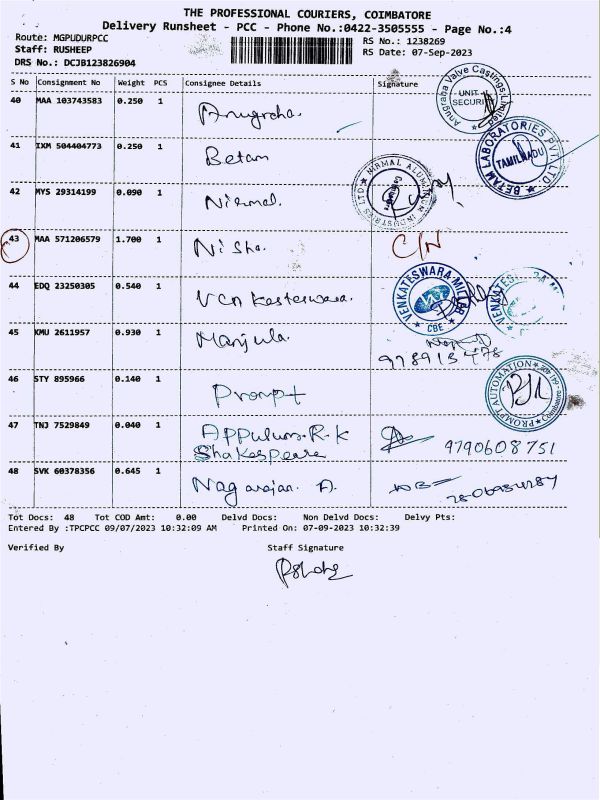 THE PROFESSIONAL COURIERS, COIMBATORE
Delivery Runsheet - PCC - Phone No.:0422-3505555 - Page No.:4
Route: MGPUDURPCC
RS No.: 1238269
Staff: RUSHEEP
RS Date: 07-Sep-2023
DRS No.: DCJB123826904
S No Consignment No Weight PCS Consignee Details Signature
40 MAA 103743583 0.250 1 Anugraha.
Anugraha Valve Castings Limited
UNIT
SECURITY
41 IXM 504404773 0.250 1 Betam
BETAM LABORATORIES PVT. LTD.
TAMILNADU
42 MYS 29314199 0.090 1 Nirmal.
NIRMAL ALUMINIUM INDUSTRIES LTD
43 MAA 571206579 1.700 1 Nisha. C/N
44 EDQ 23250305 0.540 1
VENKATESWARA
CBE
VENKATES
45 KMU 2611957 0.930 1 Manjula.
46 STY 895966 0.140 1 Prompt
PROMPT AUTOMATION
Coimbatore
47 TNJ 7529849 0.040 1 R.K 9790608751
Shakespeare
48 SVK 60378356 0.645 1 Nagarajan. A.
Tot Docs: 48 Tot COD Amt: 0.00 Delvd Docs: Non Delvd Docs: Delvy Pts:
Entered By :TPCPCC 09/07/2023 10:32:09 AM Printed On: 07-09-2023 10:32:39
Verified By Staff Signature